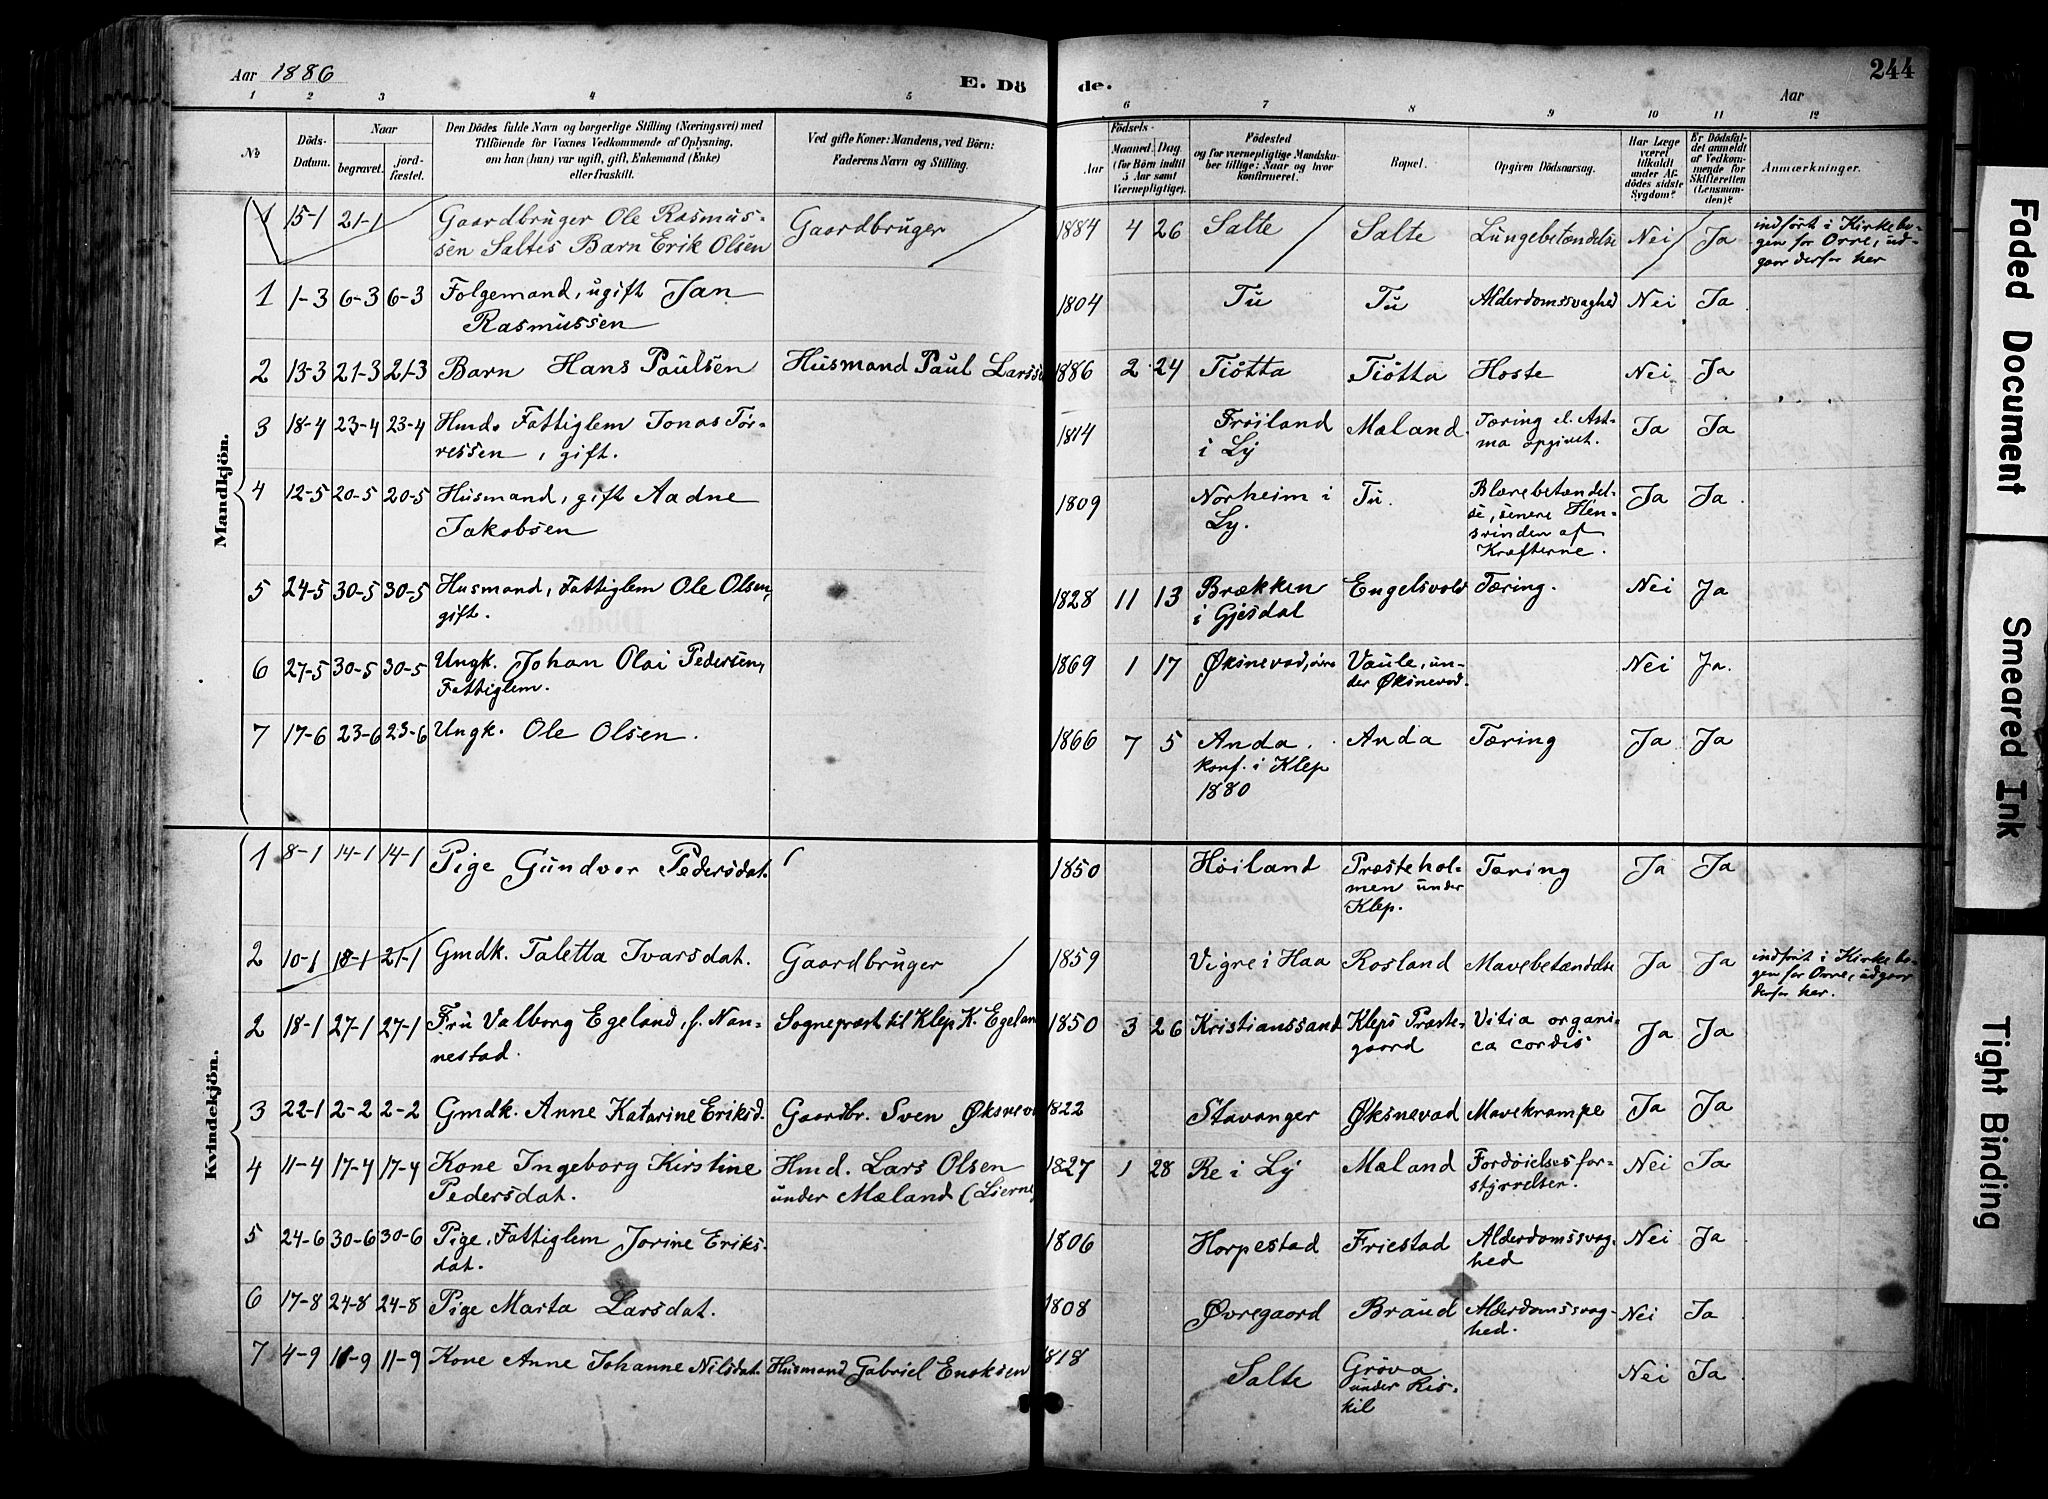 Aar 1886
E. Döde.
244
Aar
1 2 3 4 5 6 7 8 9 10 11 12
№
Döds-Datum.
Naar
begravet.
jordfæstet.
Den Dödes fulde Navn og borgerlige Stilling (Næringsvei) med
Tilföiende for Voxnes Vedkommende af Oplysning,
om han (hun) var ugift, gift, Enkemand (Enke)
eller fraskilt.
Ved gifte Koner: Mandens, ved Börn:
Faderens Navn og Stilling.
Födsels-
Aar
Maaned. Dag
(for Börn indtil
5 Aar samt
Værnepligtige).
Födested
og for værnepligtige Mandskaber tillige: Naar og hvor
konfirmeret.
Bopæl.
Opgiven Dödsaarsag.
Har Læge
været
tilkaldt
under Afdödes sidste
Sygdom?
Er Dödsfaldet anmeldt
af Vedkommende for
Skifteretten
(Lensmanden)?
Anmærkninger.
Mandkjön.
1 15-1 21-1 Gaardbruger Ole Rasmus-
sen Saltes Barn Erik Olsen Gaardbruger 1884 4 26 Salte Salte Lungebetændelse Nei Ja indført i Kirkebo-
gen for Orre, ud-
gaar derfor her
1 1-3 6-3 6-3 Folgemand, ugift Jan
Rasmussen 1804 Tu Tu Alderdomssvaghed Nei Ja
2 13-3 21-3 21-3 Barn Hans Paulsen Husmand Paul Larss 1886 2 24 Tiøtta Tiøtta Hoste Nei Ja
3 18-4 23-4 23-4 Hmd. Fattiglem Jonas Tør-
ressen, gift. 1814 Frøiland
i Ly Mæland. Tæring el. Ast-
ma opgivet. Ja Ja
4 12-5 20-5 20-5 Husmand, gift Aadne
Jakobsen 1809 Norheim i
Ly. Tu. Blærebetændel-
se, senere Hen-
svinden af
Kræfterne. Ja Ja
5 24-5 30-5 30-5 Husmand, Fattiglem Ole Olsen,
gift. 1828 11 13 Brækken
i Gjesdal Engelsvold Tæring. Nei Ja
6 27-5 30-5 30-5 Ungk. Johan Olai Pedersen,
Fattiglem. 1869 1 17 Øksnevad, Vaule, un-
der Øksnevad. Nei Ja.
7 17-6 23-6 23-6 Ungk. Ole Olsen. 1866 7 5 Anda.
konf. i Klep
1880 Anda Tæring Ja Ja
Kvindekjön.
1 8-1 14-1 14-1 Pige Gundvor Pedersdat. 1850 Høiland Præstehol-
men under
Klep. Tæring Ja Ja
2 10-1 18-1 21-1 Gmdk. Taletta Ivarsdat. Gaardbruger 1859 Vigre i Haa Rosland Mavebetændelse Ja Ja indført i Kirkebo-
gen for Orre, udgaar
derfor her.
2 18-1 27-1 27-1 Fru Valborg Egeland, f. Nan-
nestad. Sognepræst til Klep K. Egelan 1850 3 26 Kristianssand Kleps Præste-
gaard Vitia organi-
ca cordis Ja Ja
3 22-1 2-2 2-2 Gmdk. Anne Katarine Eriksd. Gaardbr. Sven Øksneva 1822 Stavanger Øksnevad Mavekrampe Ja Ja
4 11-4 17-4 17-4 Kone Ingeborg Kirstine
Pedersdat. Hmd. Lars Olsen
under Mæland (Lierne) 1827 1 28 Re i Ly Mæland Fordøielsesfor-
styrrelser. Nei Ja
5 24-6 30-6 30-6 Pige, Fattiglem Jorine Eriks-
dat. 1806 Horpestad Friestad Alderdomssvag-
hed Nei Ja
6 17-8 24-8 24-8 Pige Marta Larsdat. 1808 Øvregaard Braud Alderdomssvag-
hed. Nei Ja
7 4-9 11-9 11-9 Kone Anne Johanne Nilsdat. Husmand Gabriel Enoksen 1818 Salte Grøva
under Ris-
kil Nei Ja
Faded Document
Smeared Ink
Tight Binding